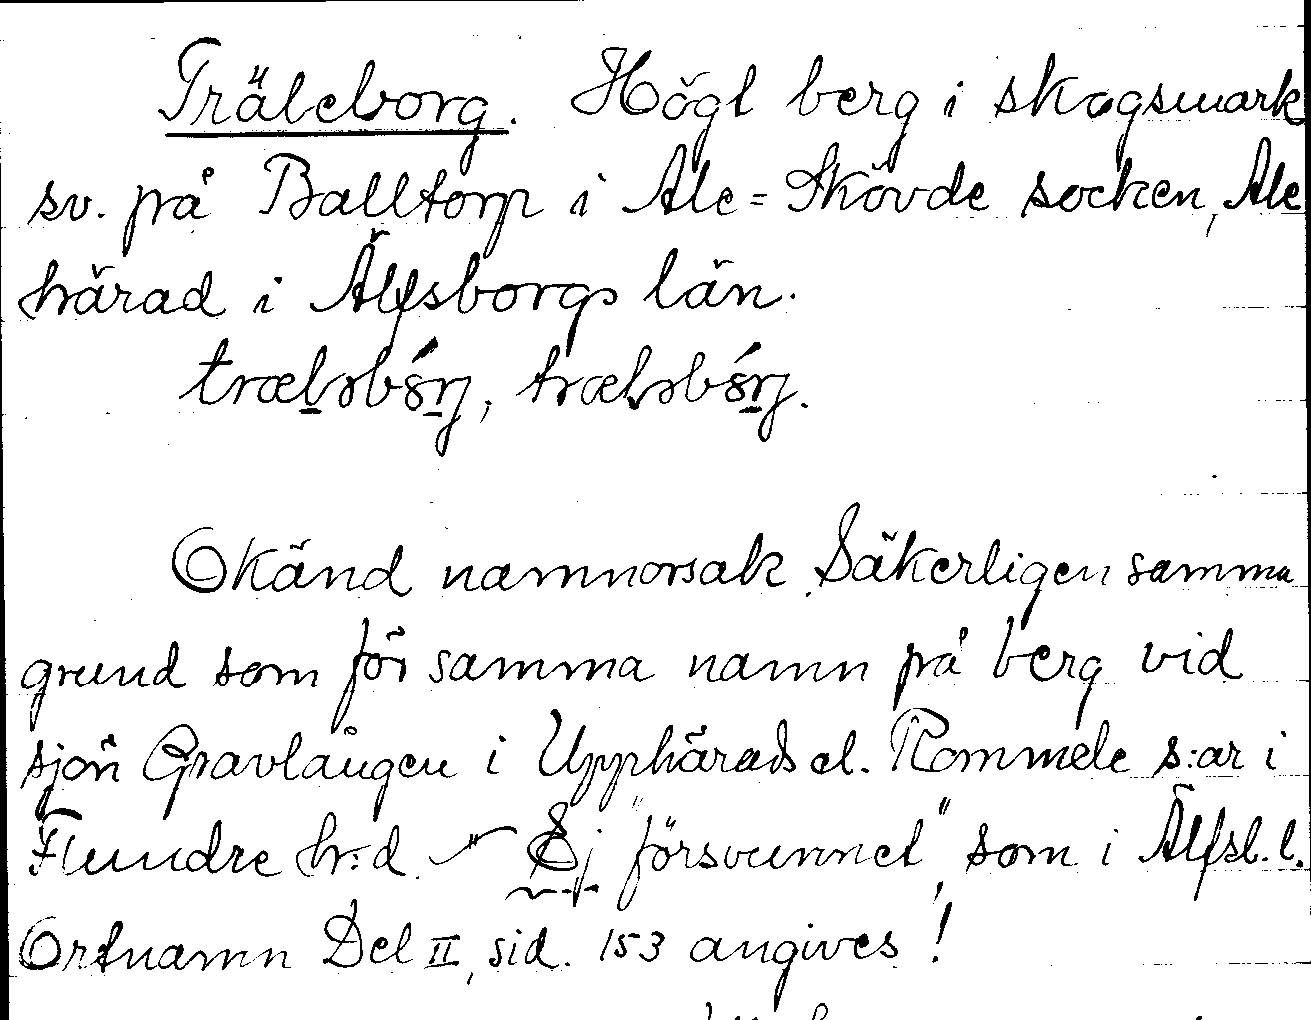 Träleborg. Högt berg i skogsmark
sv. på Balltorp i Ale-Skövde socken, Ale
härad i Älfsborgs län.
Okänd namnorsak. Säkerligen samma
grund som för samma namn på berg vid
sjön Gravlången i Upphärads el. Rommele s:ar i
Flundre h:d. Ej "försvunnet", som i Älfsb. l.
Ortnamn Del II, sid. 153 angives!